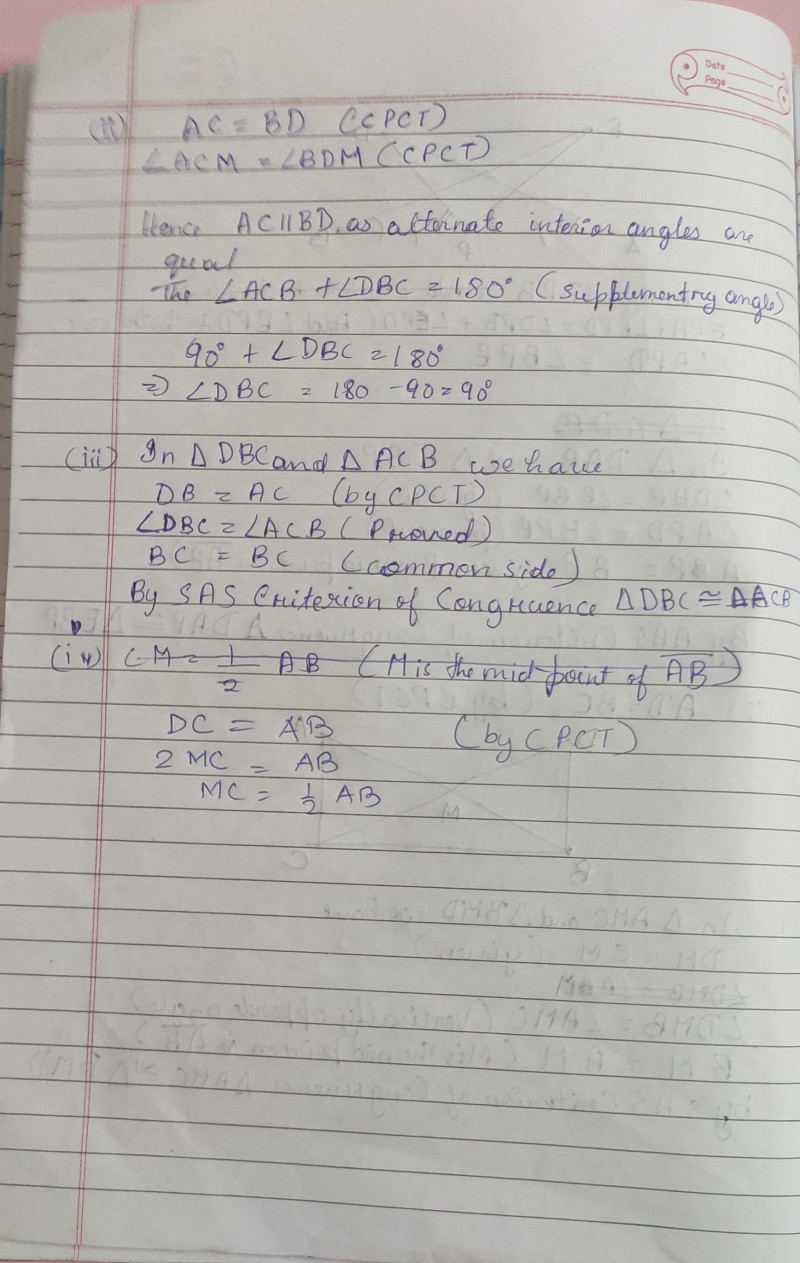 Date
Page
(ii) AC = BD (CPCT)
∠ACM = ∠BDM (CPCT)
Hence AC || BD. as alternate interior angles are
qual
The ∠ACB + ∠DBC = 180° (supplementry angle)
90° + ∠DBC = 180°
⇒ ∠DBC = 180 - 90 = 90°
(iii) In Δ DBC and Δ ACB we have
DB = AC (by CPCT)
∠DBC = ∠ACB (Proved)
BC = BC (common side)
By SAS Criterion of Congruence ΔDBC ≅ ΔACB
(iv) CM = 1/2 AB (M is the mid point of AB)
DC = AB (by CPCT)
2 MC = AB
MC = 1/2 AB